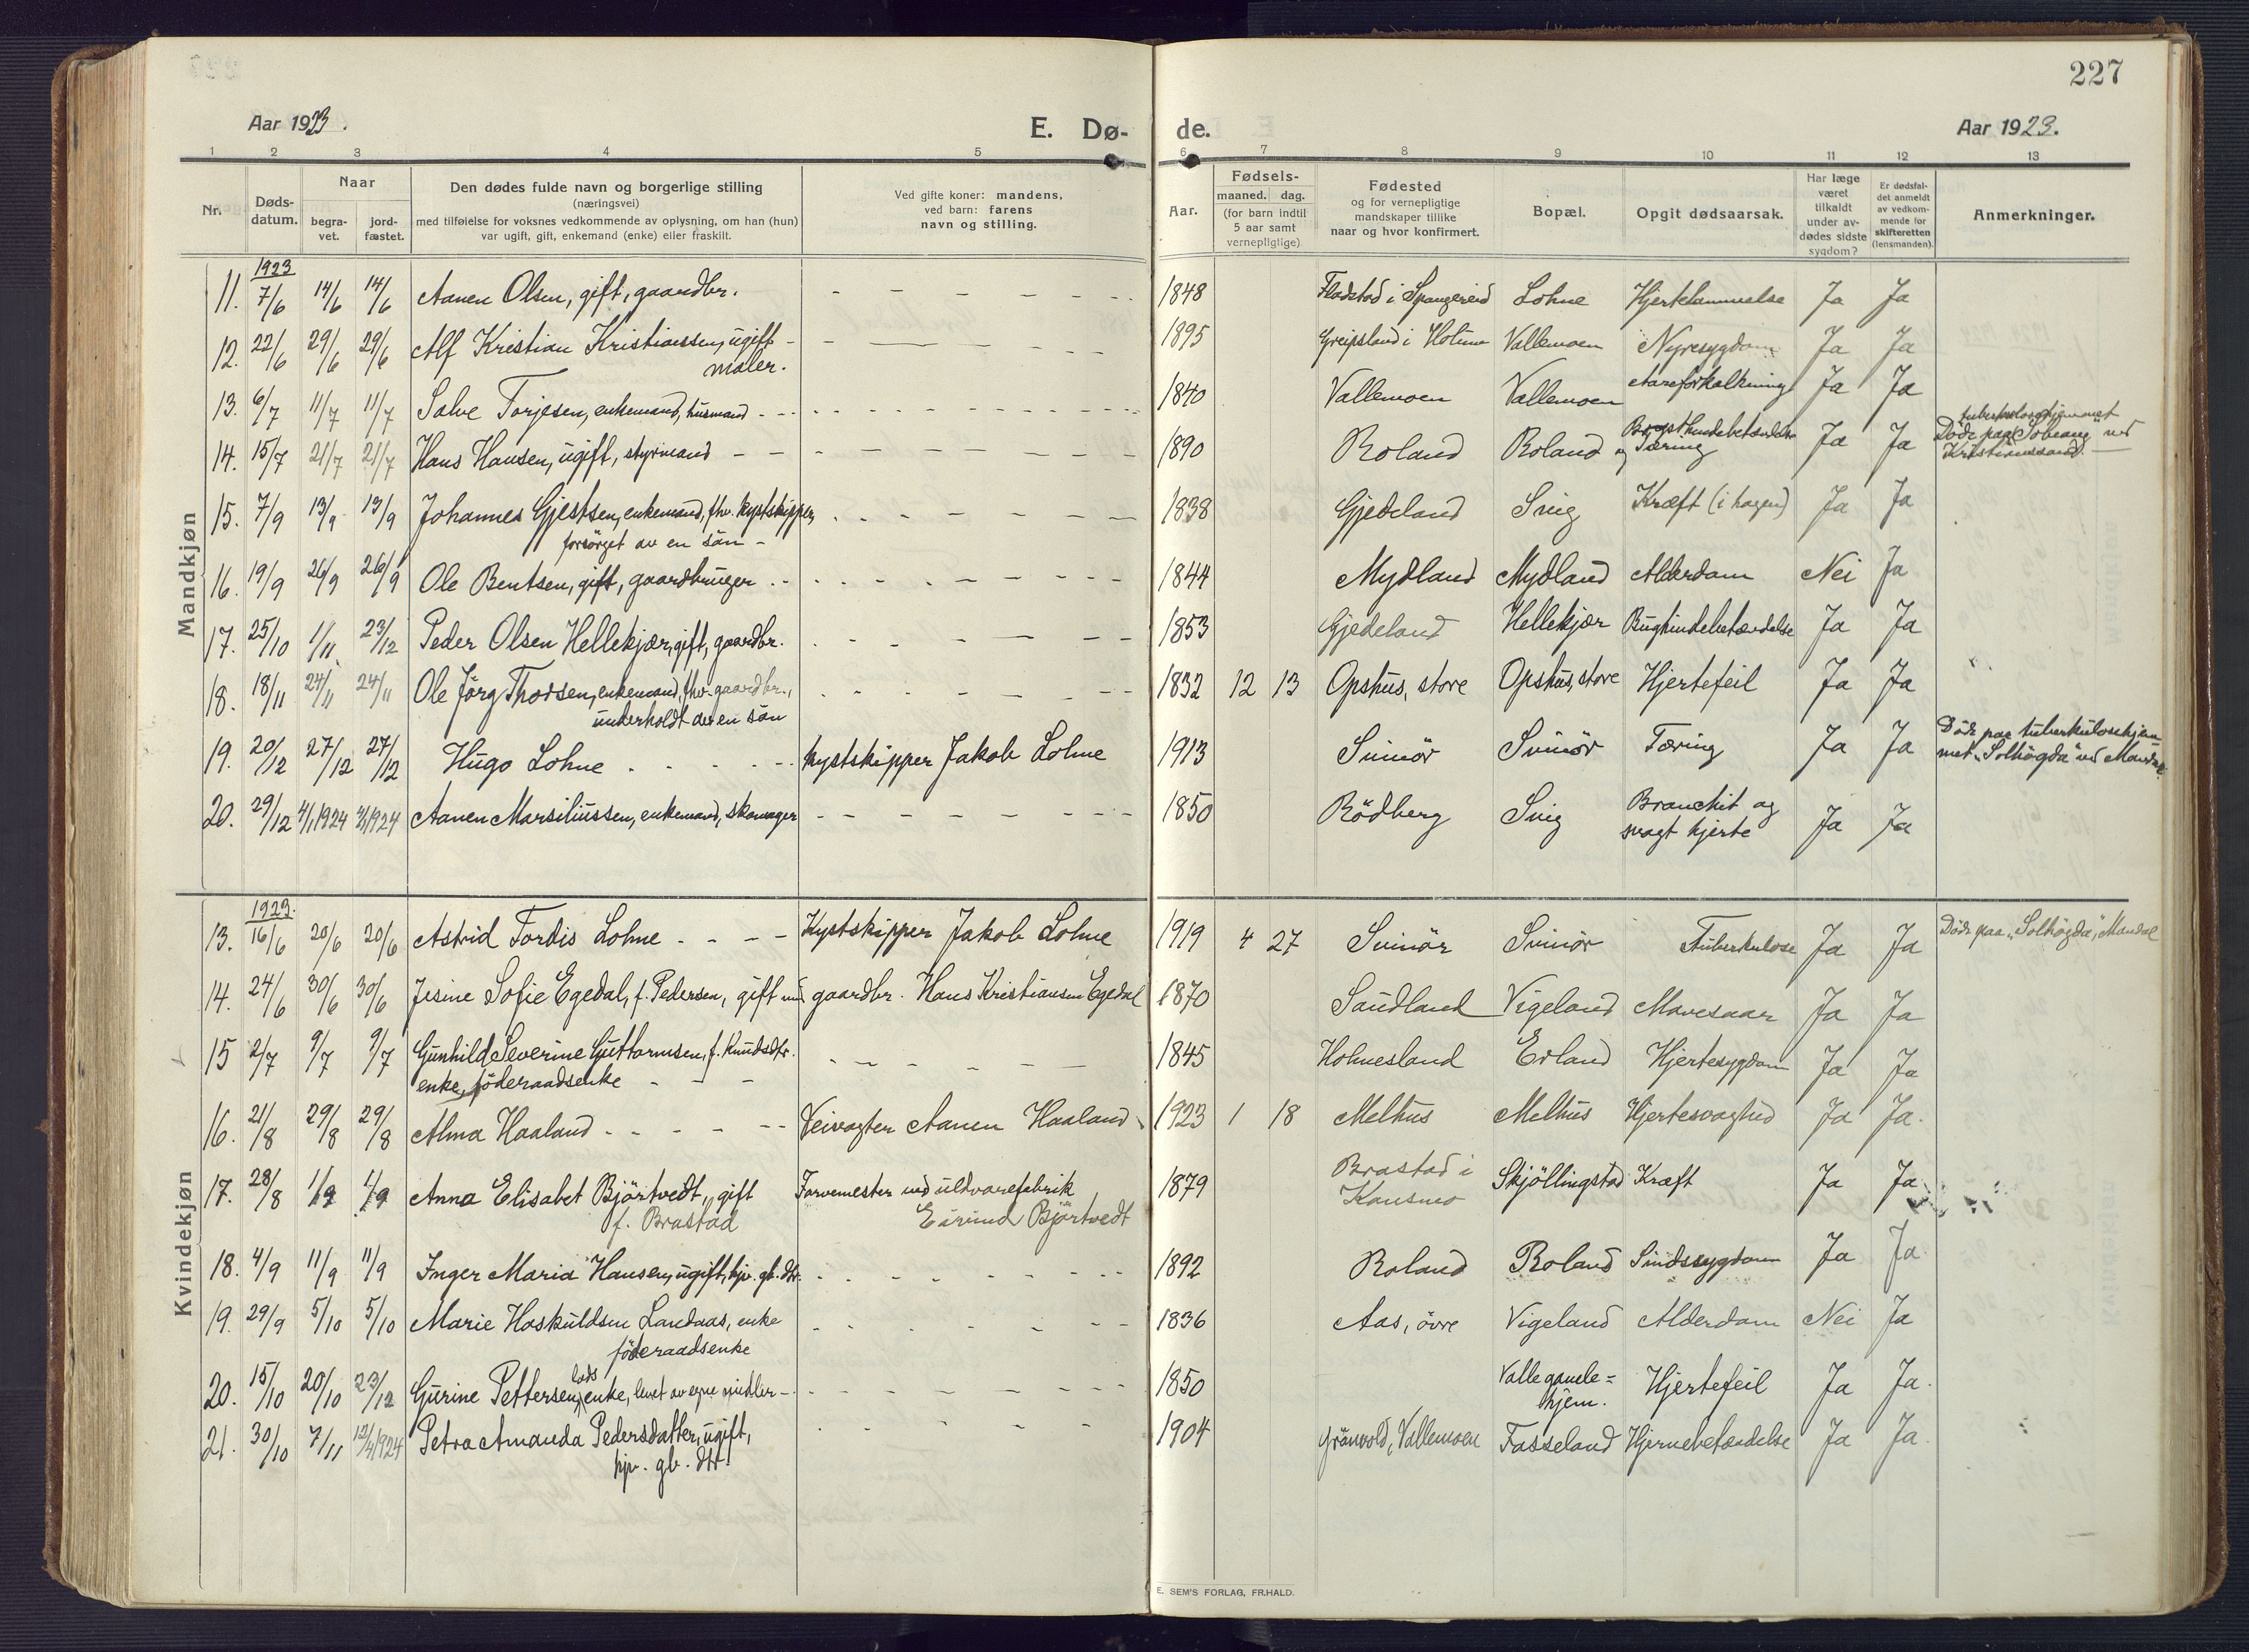 227
Aar 1923.
E. Dø-
de.
Aar 1923.
1 2 3 4 5 6 7 8 9 10 11 12 13
Nr.
Døds-
datum.
Naar
begra-
vet.
jord-
fæstet.
Den dødes fulde navn og borgerlige stilling
(næringsvei)
med tilføielse for voksnes vedkommende av oplysning, om han (hun)
var ugift, gift, enkemand (enke) eller fraskilt.
Ved gifte koner: mandens,
ved barn: farens
navn og stilling.
Aar.
Fødsels-
maaned. dag.
(for barn indtil
5 aar samt
vernepligtige)
Fødested
og for vernepligtige
mandskaper tillike
naar og hvor konfirmert.
Bopæl.
Opgit dødsaarsak.
Har læge
været
tilkaldt
under av-
dødes sidste
sygdom?
Er dødsfal-
det anmeldt
av vedkom-
mende for
skifteretten
(lensmanden).
Anmerkninger.
Mandkjøn
1923
11. 7/6 14/6 14/6 Aanen Olsen, gift, gaardbr. 1848 Fladstad i Spangereid Lohne Hjertelammelse Ja Ja
12. 22/6 29/6 29/6 Alf Kristian Kristiansen, ugift 1895 Greipsland i Holum Vallemoen Nyresygdom Ja Ja
maler.
13. 6/7 11/7 11/7 Salve Torjesen, enkemand, husmand 1840 Vallemoen Vallemoen Aareforkalkning Ja Ja
14. 15/7 21/7 21/7 Hans Hansen, ugift, styrmand 1890 Roland Roland Brysthindebetændelse Ja Ja
og Tæring
tuberkulosehjemmet
Døde paa "ved
Kristianssand.
15. 7/9 13/9 13/9 Johannes Gjestsen, enkemand, fhv. kystskipper, 1838 Gjedeland Svig Kræft (i hagen) Ja Ja
forsörget av en sön
16. 19/9 26/9 26/9 Ole Bentsen, gift, gaardbruger 1844 Mydland Mydland Alderdom Nei Ja
17. 25/10 1/11 23/12 Peder Olsen Hellekjær, gift, gaardbr. 1853 Gjedeland Hellekjær Bughindebetændelse Ja Ja
18. 18/11 24/11 24/11 Ole Jörg. Thorsen, enkemand, fhv. gaardbr., 1832 12 13 Opshus, store Opshus, store Hjertefeil Ja Ja
underholdt av en sön
19. 20/12 27/12 27/12 Hugo Lohne kystskipper Jakob Lohne 1913 Svinör Svinör Tæring Ja Ja
Döde paa tuberkulosehjem-
met "Solhögda" ved Mandal.
20. 29/12 4/1 1924 4/1 1924 Aanen Marsiliussen, enkemand, skomager 1850 Rödberg Svig Bronchit og
svagt hjerte Ja Ja
Kvindekjøn
1923.
13. 16/6 20/6 20/6 Astrid Tordis Lohne Kystskipper Jakob Lohne 1919 4 27 Svinör Svinör Tuberkulose Ja Ja Döde paa "Solhögda", Mandal
14. 24/6 30/6 30/6 Jesine Sofie Egedal, f. Pedersen, gift med gaardbr. Hans Kristiansen Egedal 1870 Saudland Vigeland Mavesaar Ja Ja
15 2/7 9/7 9/7 Gunhild Severine Guttormsen, f. Knudsdtr. 1845 Holmesland Erland Hjertesygdom Ja Ja
enke, föderaadsenke
16. 21/8 29/8 29/8 Alma Haaland Veivogter Aanen Haaland 1923 1 18 Melhus Melhus Hjertesvaghed Ja Ja.
17. 28/8 1/9 1/9 Anna Elisabet Björtvedt, gift Farvemester ved uldvarefabrik 1879 Brastad i Skjöllingstad Kræft Ja Ja
f. Brastad Eivind Björtvedt Konsmo
18. 4/9 11/9 11/9 Inger Maria Hansen, ugift, hjv. gb. dtr. 1892 Roland Roland Sindssygdom Ja Ja
19. 29/9 5/10 5/10 Marie Haskuldsen Landaas, enke 1836 Aas, övre Vigeland Alderdom Nei Ja
föderaadsenke
20. 15/10 20/10 23/12 Gurine Pettersen, lods enke, levet av egne midler 1850 Valle gamle= Hjertefeil Ja Ja.
hjem.
21. 30/10 7/11 12/4 1924 Petra Amanda Pedersdatter, ugift, 1904 Grönvold, Vallemoen Fasseland Hjernebetændelse Ja Ja.
hjv. gb. dtr.
E. SEM'S FORLAG, FR.HALD.